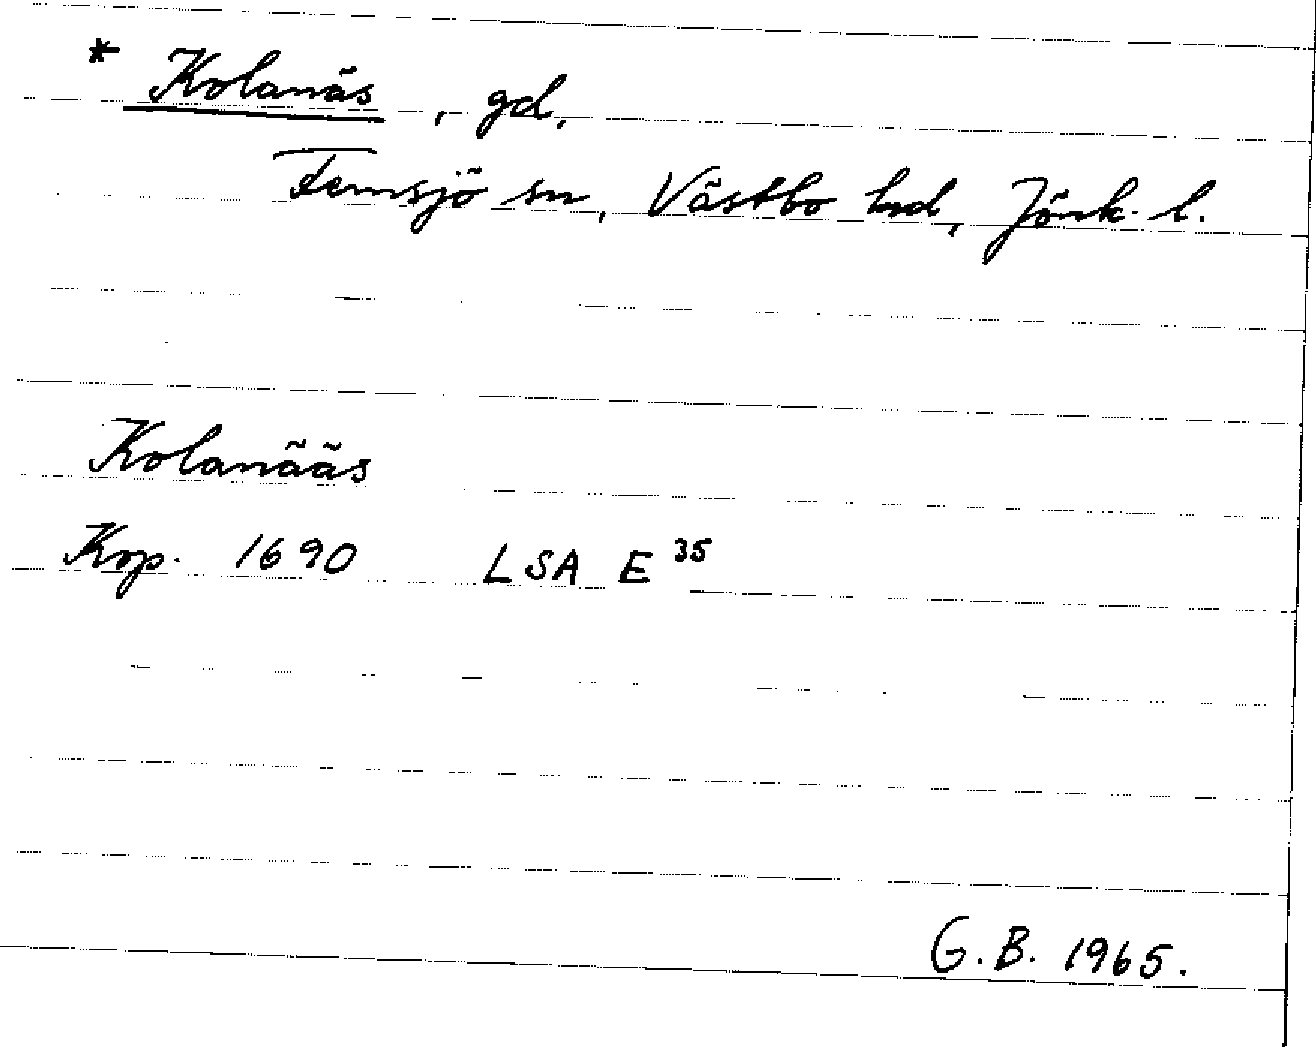 * Kolanäs, gd,
Femsjö sn, Västbo hd, Jönk. l.
Kolanääs
Kop. 1690 LSA E 35
G.B. 1965.